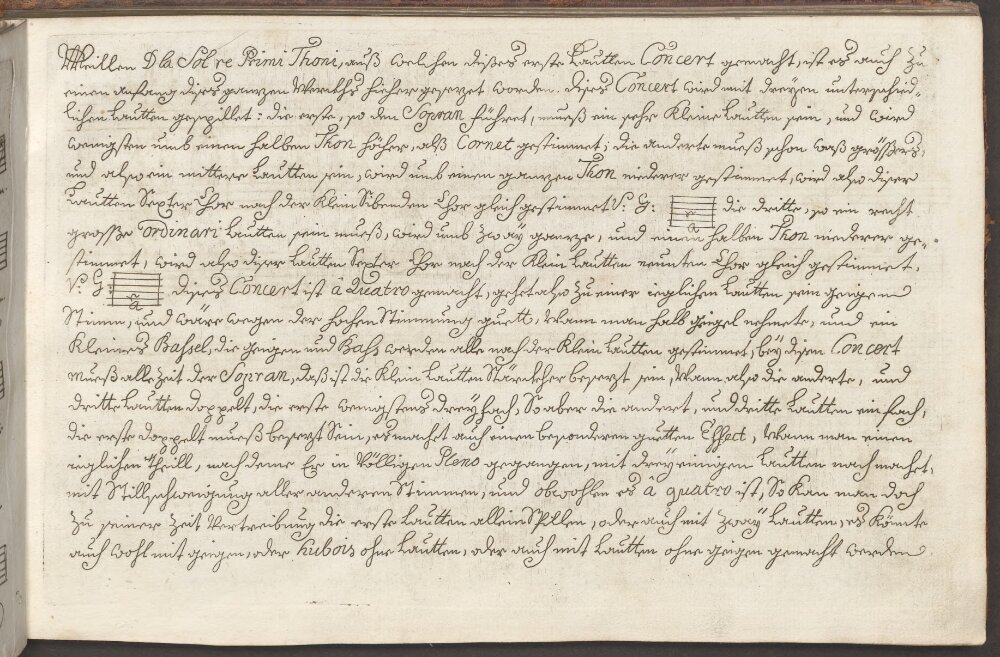 Weillen D la Sol re Primi Thoni, auß welchen dises erste Lautten Concert gemacht, ist es auch zu
einen anfang dises ganzen Werckhs hieher gesezet worden. Dises Concert wird mit dreyen unterschid-
lichen Lautten gespillet: die erste, so den Sopran führet, mueß ein sehr Kleine Lautten sein, und wird
wenigsten umb einen halben Thon höher, alß Cornet gestimmet; die anderte mueß schon waß grössers,
und also ein mittere Lautten sein, wird umb einen ganzen Thon niederer gestimmet, wird also diser
Lautten Sexter Chor nach der Klein Sibenden Chor gleich gestimmet V: G: a die dritte, so ein recht
grosse ordinari Lautten sein mueß, wird umb zway ganze, und einen halben Thon niederer ge-
stimmet, wird also diser Lautten Sexter Chor nach der Klein Lautten neunten Chor gleich gestimmet.
V: G: a dises Concert ist â Quatro gemacht, gehet also zu einer ieglichen Lautten sein geigen
Stimm, und wäre wegen der hochen Stimmung guett, Wann man halb geigel nehmete, und ein
Kleines Bassel, die geigen und Bass werden alle nach der Klein Lautten gestimmet, beÿ disem Concert
mueß alle Zeit der Sopran, daß ist die Klein Lautten Stärckher besezt sein, Wann also die anderte, und
dritte Lautten doppelt, die erste wenigstens dreyfach, So aber die andert, und dritte Lautten einfach,
die erste doppelt mueß besezt Sein, es machet auch einen besonderen guetten Effect, Wann man einen
ieglichen Theill, nach deme Er in Völligen Pleno gegangen, mit dreÿ einigen Lautten nachmachet,
mit Stillschweigung aller anderen Stimmen, und obwohlen es â quatro ist, So Kan man doch
zu seiner Zeit Vertreibung die erste Lautten allein Spillen, oder auch mit zwaÿ Lautten, es Könnte
auch wohl mit geigen, oder Hubois ohne Lautten, oder auch mit Lautten ohne geigen gemacht werden